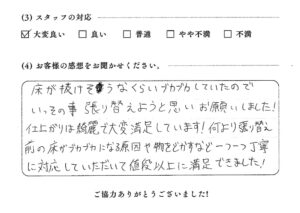 (3) スタッフの対応
☑大変良い □良い □普通 □やや不満 □不満
(4) お客様の感想をお聞かせください。
床が抜けそうなくらいブカブカしていたので
いっその事張り替えようと思いお願いしました!
仕上がりは綺麗で大変満足しています!何より張り替え
前の床がブカブカになる原因や物をどかすなど一つ一つ丁寧
に対応していただいて値段以上に満足できました!
ご協力ありがとうございました!